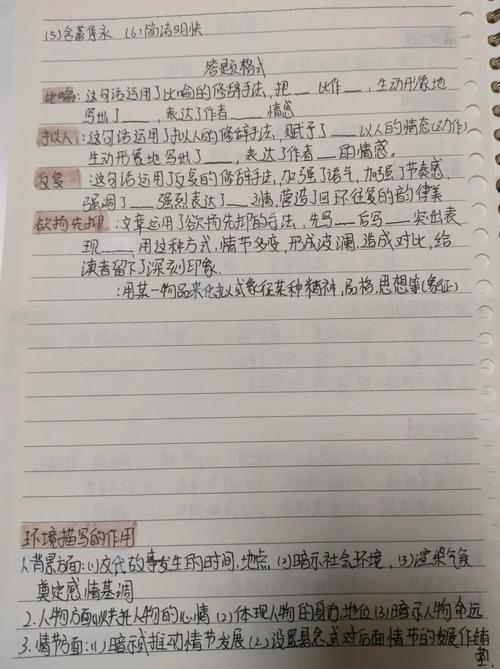 (5)含蓄隽永 (6)简洁明快
答题格式
比喻：这句话运用了比喻的修辞手法，把___比作___，生动形象地
写出了___，表达了作者___情感
拟人：这句话运用了拟人的修辞手法，赋予了___以人的情态(动作)
生动形象地写出了___，表达了作者___的情感。
反复：这句话运用了反复的修辞手法，加强了语气，加强了节奏感
强调了___强烈表达了___之情，营造了回环往复的韵律美
欲扬先抑：文章运用了欲扬先抑的手法，先写___后写___突出表
现___，用这种方式，情节多变，形成波澜，造成对比，给
读者留下了深刻印象.
：用某一物品来化拟或象征某种精神，品格，思想等(象征)
环境描写的作用
1.背景方面：(1)交代故事发生的时间.地点 (2)暗示社会环境，(3)渲染气氛
奠定感情基调
2.人物方面 烘托人物的心情 (2)体现人物的身份地位 (3)暗示人物命运
3.情节方面：(1)暗示或推动情节发展 (2)设置悬念或对后面情节的发展作铺
垫